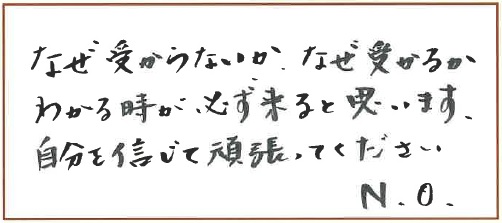 なぜ受からないか、なぜ受かるか
わかる時が、必ず来ると思います、
自分を信じて頑張ってください
N.O.